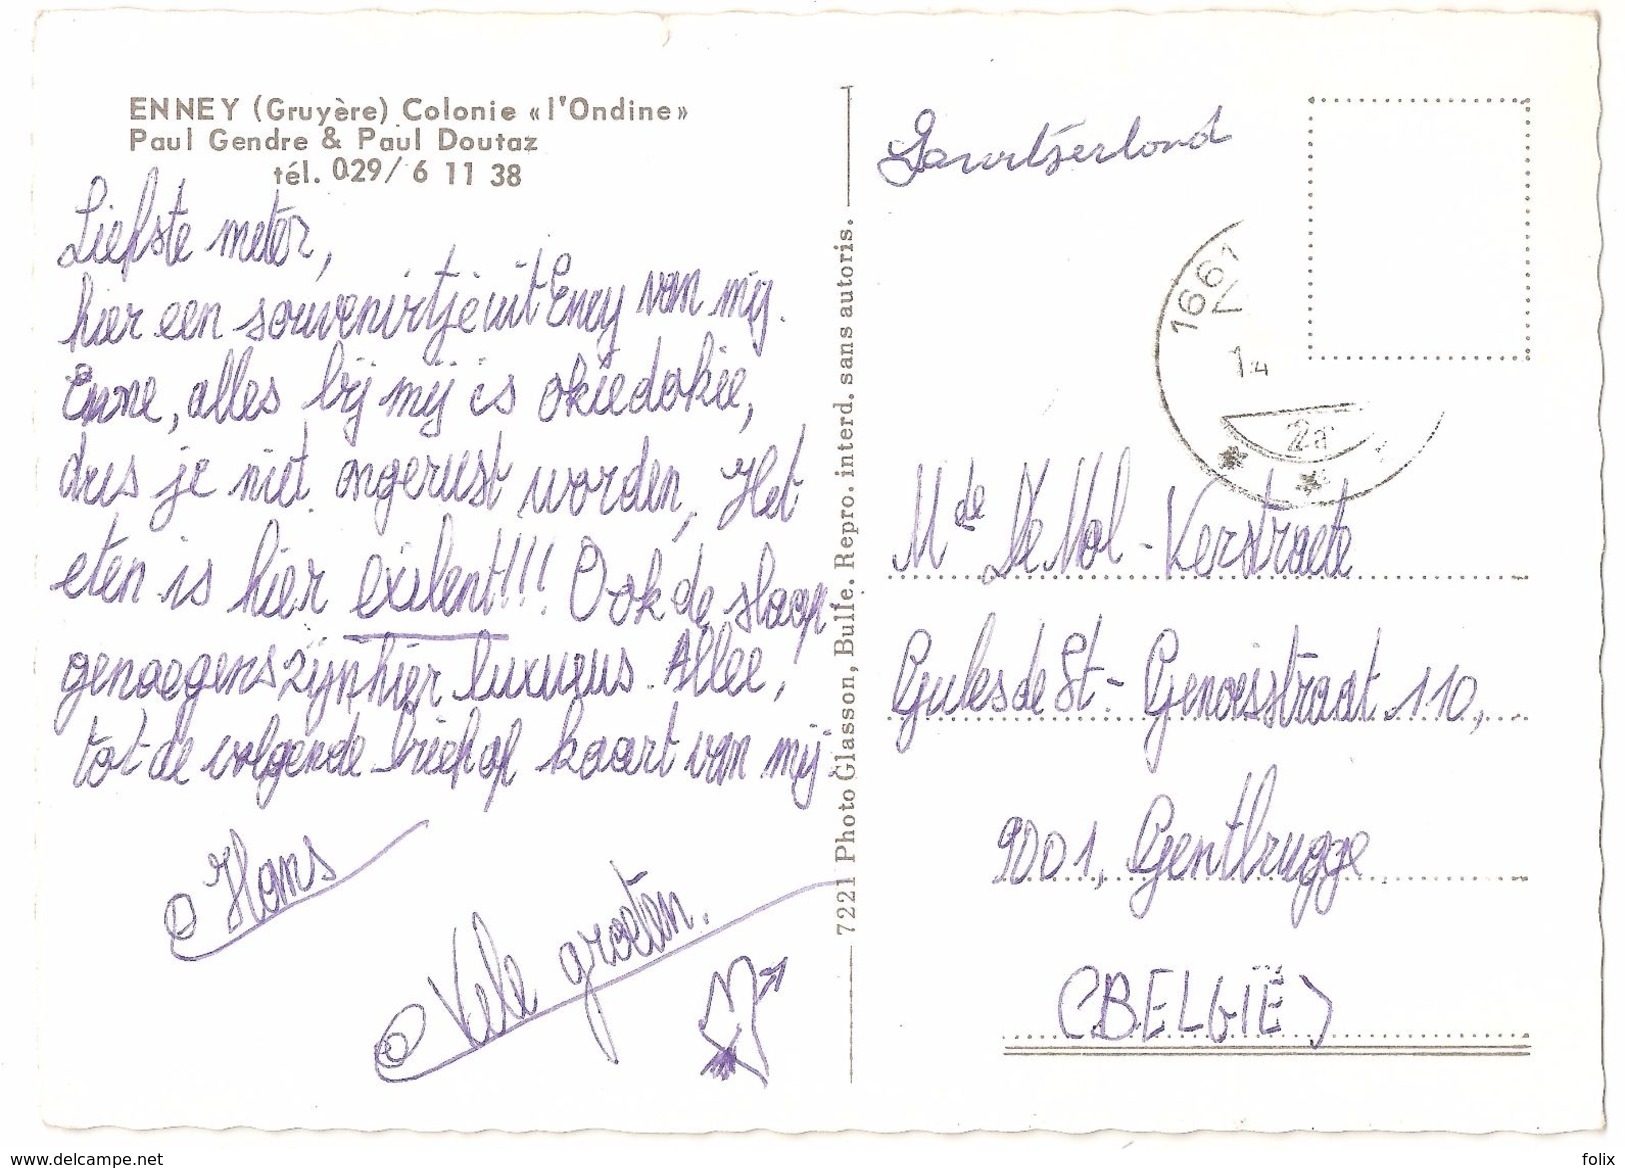 ENNEY (Gruyère) Colonie «l'Ondine»
Paul Gendre & Paul Doutaz
tél. 029/6 11 38
Liefste meter,
hier een souvenirtje uit Eney van mij.
alles bij mij is okiedokie,
dus je niet ongerust worden, Het
eten is hier exilent!!! Ook de slaap-
genoegens zijn hier luxueus. Allee,
tot de volgende brief of kaart van mij
Hans
Vele groeten.
7221 Photo Glasson, Bulle. Repro. interd. sans autoris.
1667
14
2a
Mde De Mol - Verstraete
Gules de St- Genoisstraat 110,
9001, Gentbrugge
(BELGIË)
www.delcampe.net
folix